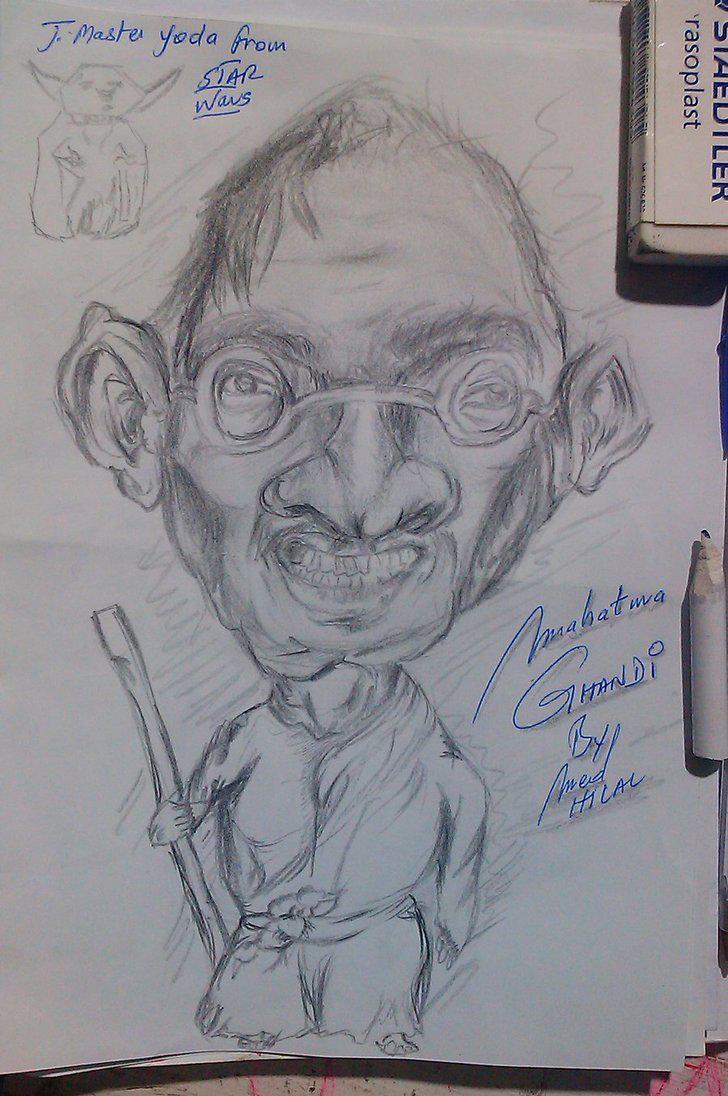 J. Master Yoda from
STAR
Wars
STAEDTLER
rasoplast
Mahatma
GHANDi
By
HILAL